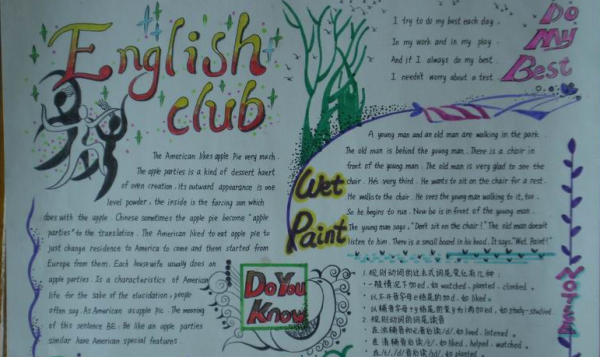 English
club
The American likes apple Pie very much.
The apple parties is a kind of dessert haert
of oven creation, its outward appearance is one
level powder, the inside is the farcing sun which
does with the apple. Chinese sometimes the apple pie become "apple
parties" to the translation. The American liked to eat apple pie to
just change residence to America to come and then started from
Europe from them. Each housewife usually does on
apple parties. Is a characteristics of American
life for the sake of the elucidation, people
often say. As American as apple pie. The meaning
of this sentence BE: Be like an apple parties
similar have American special features.
Do
My
Best
I try to do my best each day.
In my work and in my play.
And if I always do my best.
I needn't worry about a test.
Wet
Paint
A young man and an old man are walking in the park.
The old man is behind the young man. There is a chair in
front of the young man. The old man is very glad to see the
chair. He's very third. He wants to sit on the chair for a rest.
He walks to the chair. He sees the young man walking to it, too.
So he begins to run. Now he is in front of the young man.
The young man says, "Don't sit on the chair!" The old man doesn't
listen to him. There is a small board in his hand. It says, "Wet Paint!"
Do You
Know
1. 规则动词的过去式词尾变化有几种:
一般情况下加ed, 如 watched, planted, climbed.
以不发音字母e结尾的加d, 如 liked.
以辅音字母+y结尾的变y为i再加ed, 如 study-studied.
2. 规则动词的词尾读音
在浊辅音和元音后读/d/, 如 lived, listened.
在清辅音后读/t/, 如 liked, helped, watched.
在/t/,/d/后读/id/, 如 planted